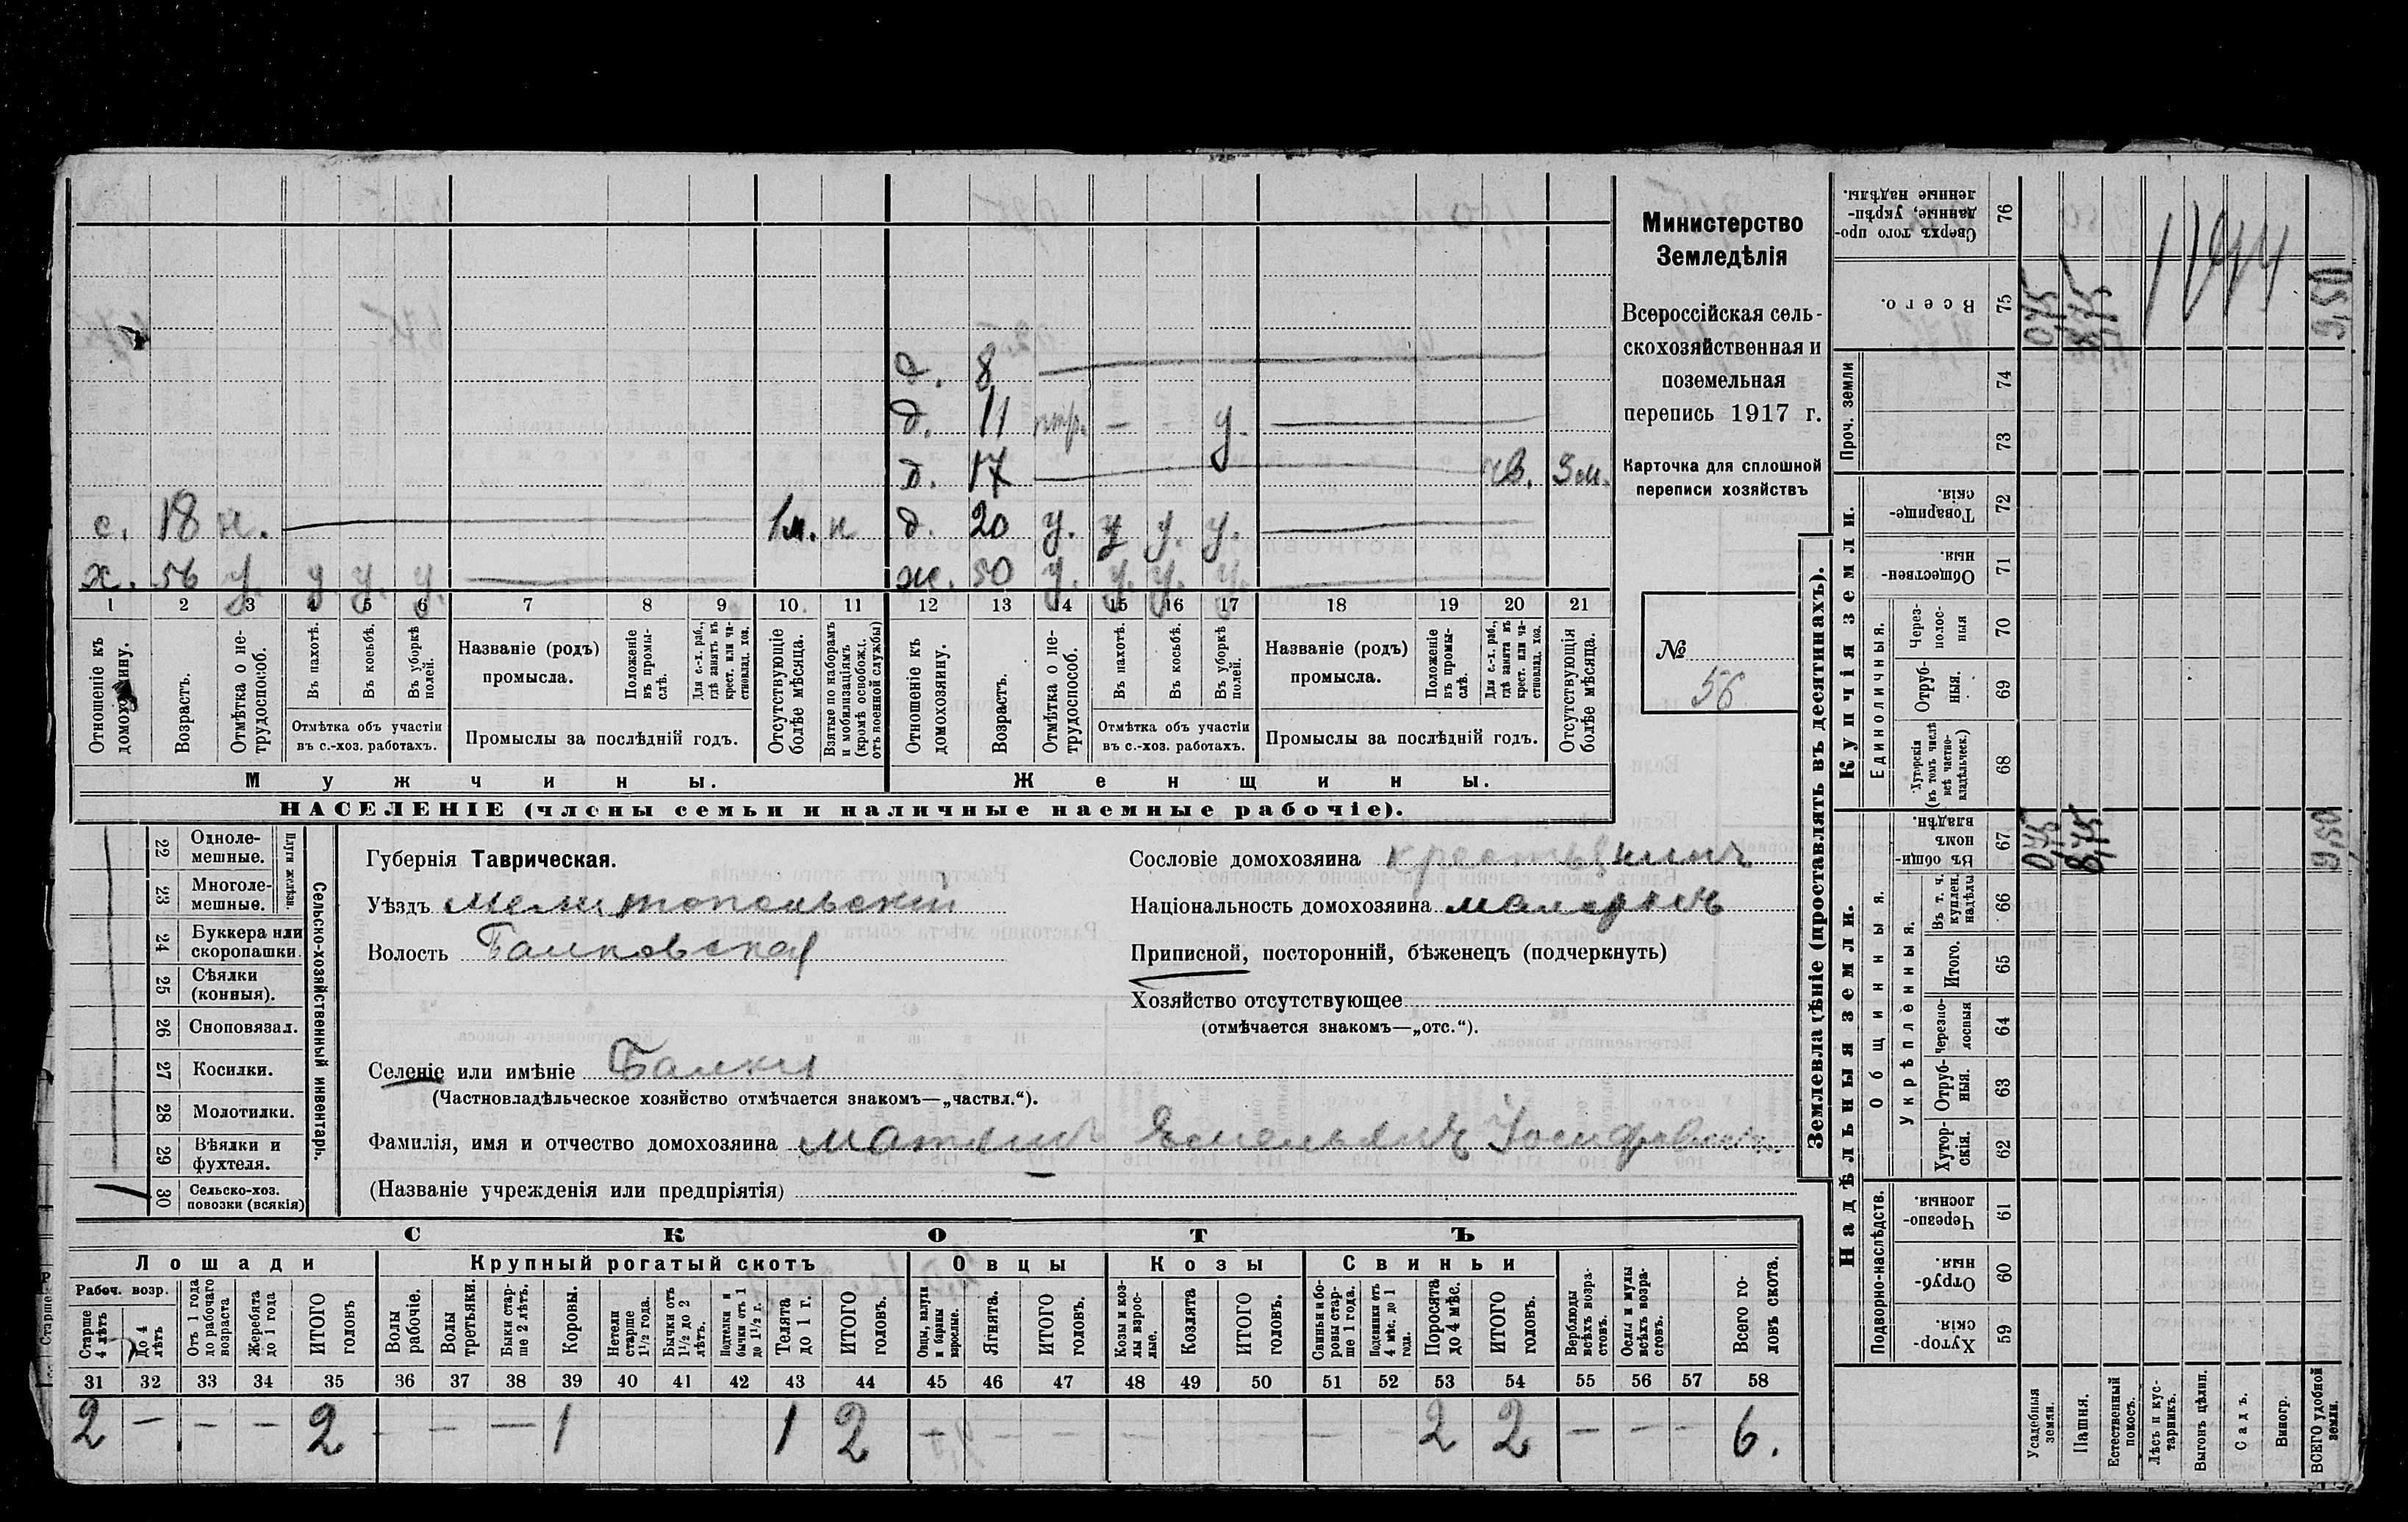 д. 8
д. 11 — — у.
д. 17 3 м.
с. 18 н. 1 м. н д. 20 у. у у. у.
х. 56 у. у у. у. ж. 50 у. у. у. у.
1 2 3 4 5 6 7 8 9 10 11 12 13 14 15 16 17 18 19 20 21
Отношеніе къ домохозяину.
Возрастъ.
Отмѣтка о нетрудоспособ.
Въ пахотѣ.
Въ косьбѣ.
Въ уборкѣ полей.
Отмѣтка объ участіи въ с.-хоз. работахъ.
Названіе (родъ) промысла.
Положеніе въ промыслѣ.
Для с.-х. раб., гдѣ занятъ въ крест. или частновлад. хоз.
Промыслы за послѣдній годъ.
Отсутствующіе болѣе мѣсяца.
Взятые по наборамъ и мобилизаціямъ (кромѣ освобожд. отъ военной службы)
Отношеніе къ домохозяину.
Возрастъ.
Отмѣтка о нетрудоспособ.
Въ пахотѣ.
Въ косьбѣ.
Въ уборкѣ полей.
Отмѣтка объ участіи въ с.-хоз. работахъ.
Названіе (родъ) промысла.
Положеніе въ промыслѣ.
Для с.-х. раб., гдѣ занята въ крест. или частновлад. хоз.
Промыслы за послѣдній годъ.
Отсутствующія болѣе мѣсяца.
Мужчины.
Женщины.
НАСЕЛЕНІЕ (члены семьи и наличные наемные рабочіе).
Министерство
Земледѣлія
Всероссійская сель-
скохозяйственная и
поземельная
перепись 1917 г.
Карточка для сплошной
переписи хозяйствъ
№
56
22 Одноле-мешные.
23 Многоле-мешные.
Плуги желѣзн.
24 Буккера или скоропашки.
25 Сѣялки (конныя).
26 Сноповязал.
27 Косилки.
28 Молотилки.
29 Вѣялки и фухтеля.
30 Сельско-хоз. повозки (всякія)
Сельско-хозяйственный инвентарь.
Губернія Таврическая.
Уѣздъ Мелитопольскій
Волость Балковская
Селеніе или имѣніе Балки
(Частновладѣльческое хозяйство отмѣчается знакомъ—„частвл.“).
Фамилія, имя и отчество домохозяина Емельянъ
(Названіе учрежденія или предпріятія)
Сословіе домохозяина
Національность домохозяина
Приписной, посторонній, бѣженецъ (подчеркнуть)
Хозяйство отсутствующее
(отмѣчается знакомъ—„отс.“).
СКОТЪ
Лошади
Крупный рогатый скотъ
Овцы
Козы
Свиньи
Рабоч. возр.
Старше 4 лѣтъ
До 4 лѣтъ
Отъ 1 года до рабочаго возраста
Жеребята до 1 года
ИТОГО головъ
Волы рабочіе.
Волы третьяки.
Быки старше 2 лѣтъ.
Коровы.
Нетели старше 1½ года.
Бычки отъ 1½ до 2 лѣтъ.
Подтелки и бычки отъ 1 до 1½ г.
Телята до 1 г.
ИТОГО головъ.
Овцы, валухи и бараны взрослые.
Ягнята.
ИТОГО головъ.
Козы и козлы взрослые.
Козлята
ИТОГО головъ.
Свиньи и боровы старше 1 года.
Подсвинки отъ 4 мѣс. до 1 года.
Поросята до 4 мѣс.
ИТОГО головъ.
Верблюды всѣхъ возрастовъ.
Ослы и мулы всѣхъ возрастовъ.
Всего головъ скота.
31 32 33 34 35 36 37 38 39 40 41 42 43 44 45 46 47 48 49 50 51 52 53 54 55 56 57 58
2 — — — 2 — — — 1 1 2 — — — — — — — — 2 2 — — — 6.
Землевладѣніе (проставлять въ десятинахъ).
Купчія земли.
Надѣльныя земли.
Сверхъ того проданные, укрѣпленные надѣлы. 76
Всего. 75 0,75 8,75 9,50
Проч. земли 74 73
Товарищескія. 72
Общественныя. 71
Единоличныя.
Черезполосныя 70
Отрубныя. 69
Хуторскія (въ томъ числѣ всѣ частновладѣльческ.) 68
Общинныя.
Въ общинномъ владѣн. 67 0,75 8,75 9,50
Укрѣпленныя.
Въ т. ч. куплен. надѣлы 66
Итого. 65
Черезполосныя 64
Отрубныя. 63
Хуторскія. 62
Подворно-наслѣдств.
Черезполосныя 61
Отрубныя. 60
Хуторскія. 59
Усадебныя земли.
Пашня.
Естественный покосъ.
Лѣсъ и кустарникъ.
Выгонъ цѣлин.
Садъ.
Виногр.
ВСЕГО удобной земли.